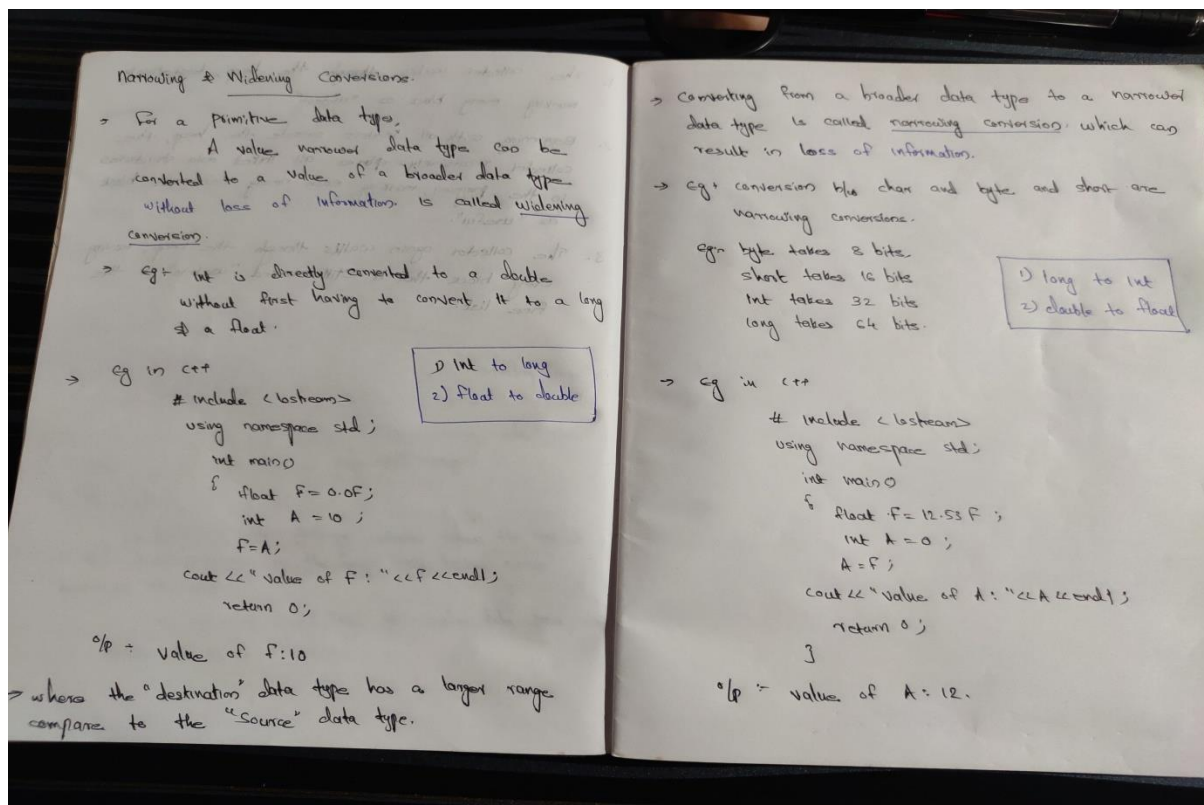 Narrowing & Widening Conversions.
→ For a primitive data type,
A value narrower data type can be
converted to a value of a broader data type
without loss of Information. is called widening
conversion.
→ eg:- int is directly converted to a double
without first having to convert it to a long
a float.
→ eg in c++
# include <iostream>
using namespace std;
int main()
{ float F = 0.0F;
int A = 10 ;
f = A;
cout << "value of F : "<<f<<endl;
return 0;
o/p :- value of f:10
→ where the "destination" data type has a larger range
compare to the "Source" data type.
1) Int to long
2) float to double
→ converting from a broader data type to a narrower
data type is called narrowing conversion. which can
result in loss of information.
→ eg:- conversion b/w char and byte and short are
narrowing conversions.
eg:- byte takes 8 bits.
short takes 16 bits
Int takes 32 bits
long takes 64 bits.
1) long to int
2) double to float
→ eg in c++
# include <iostream>
using namespace std;
int main()
{
float f = 12.53 F ;
int A = 0 ;
A = F ;
cout << "value of A : "<<A<<endl;
return 0 ;
}
o/p :- value of A : 12.